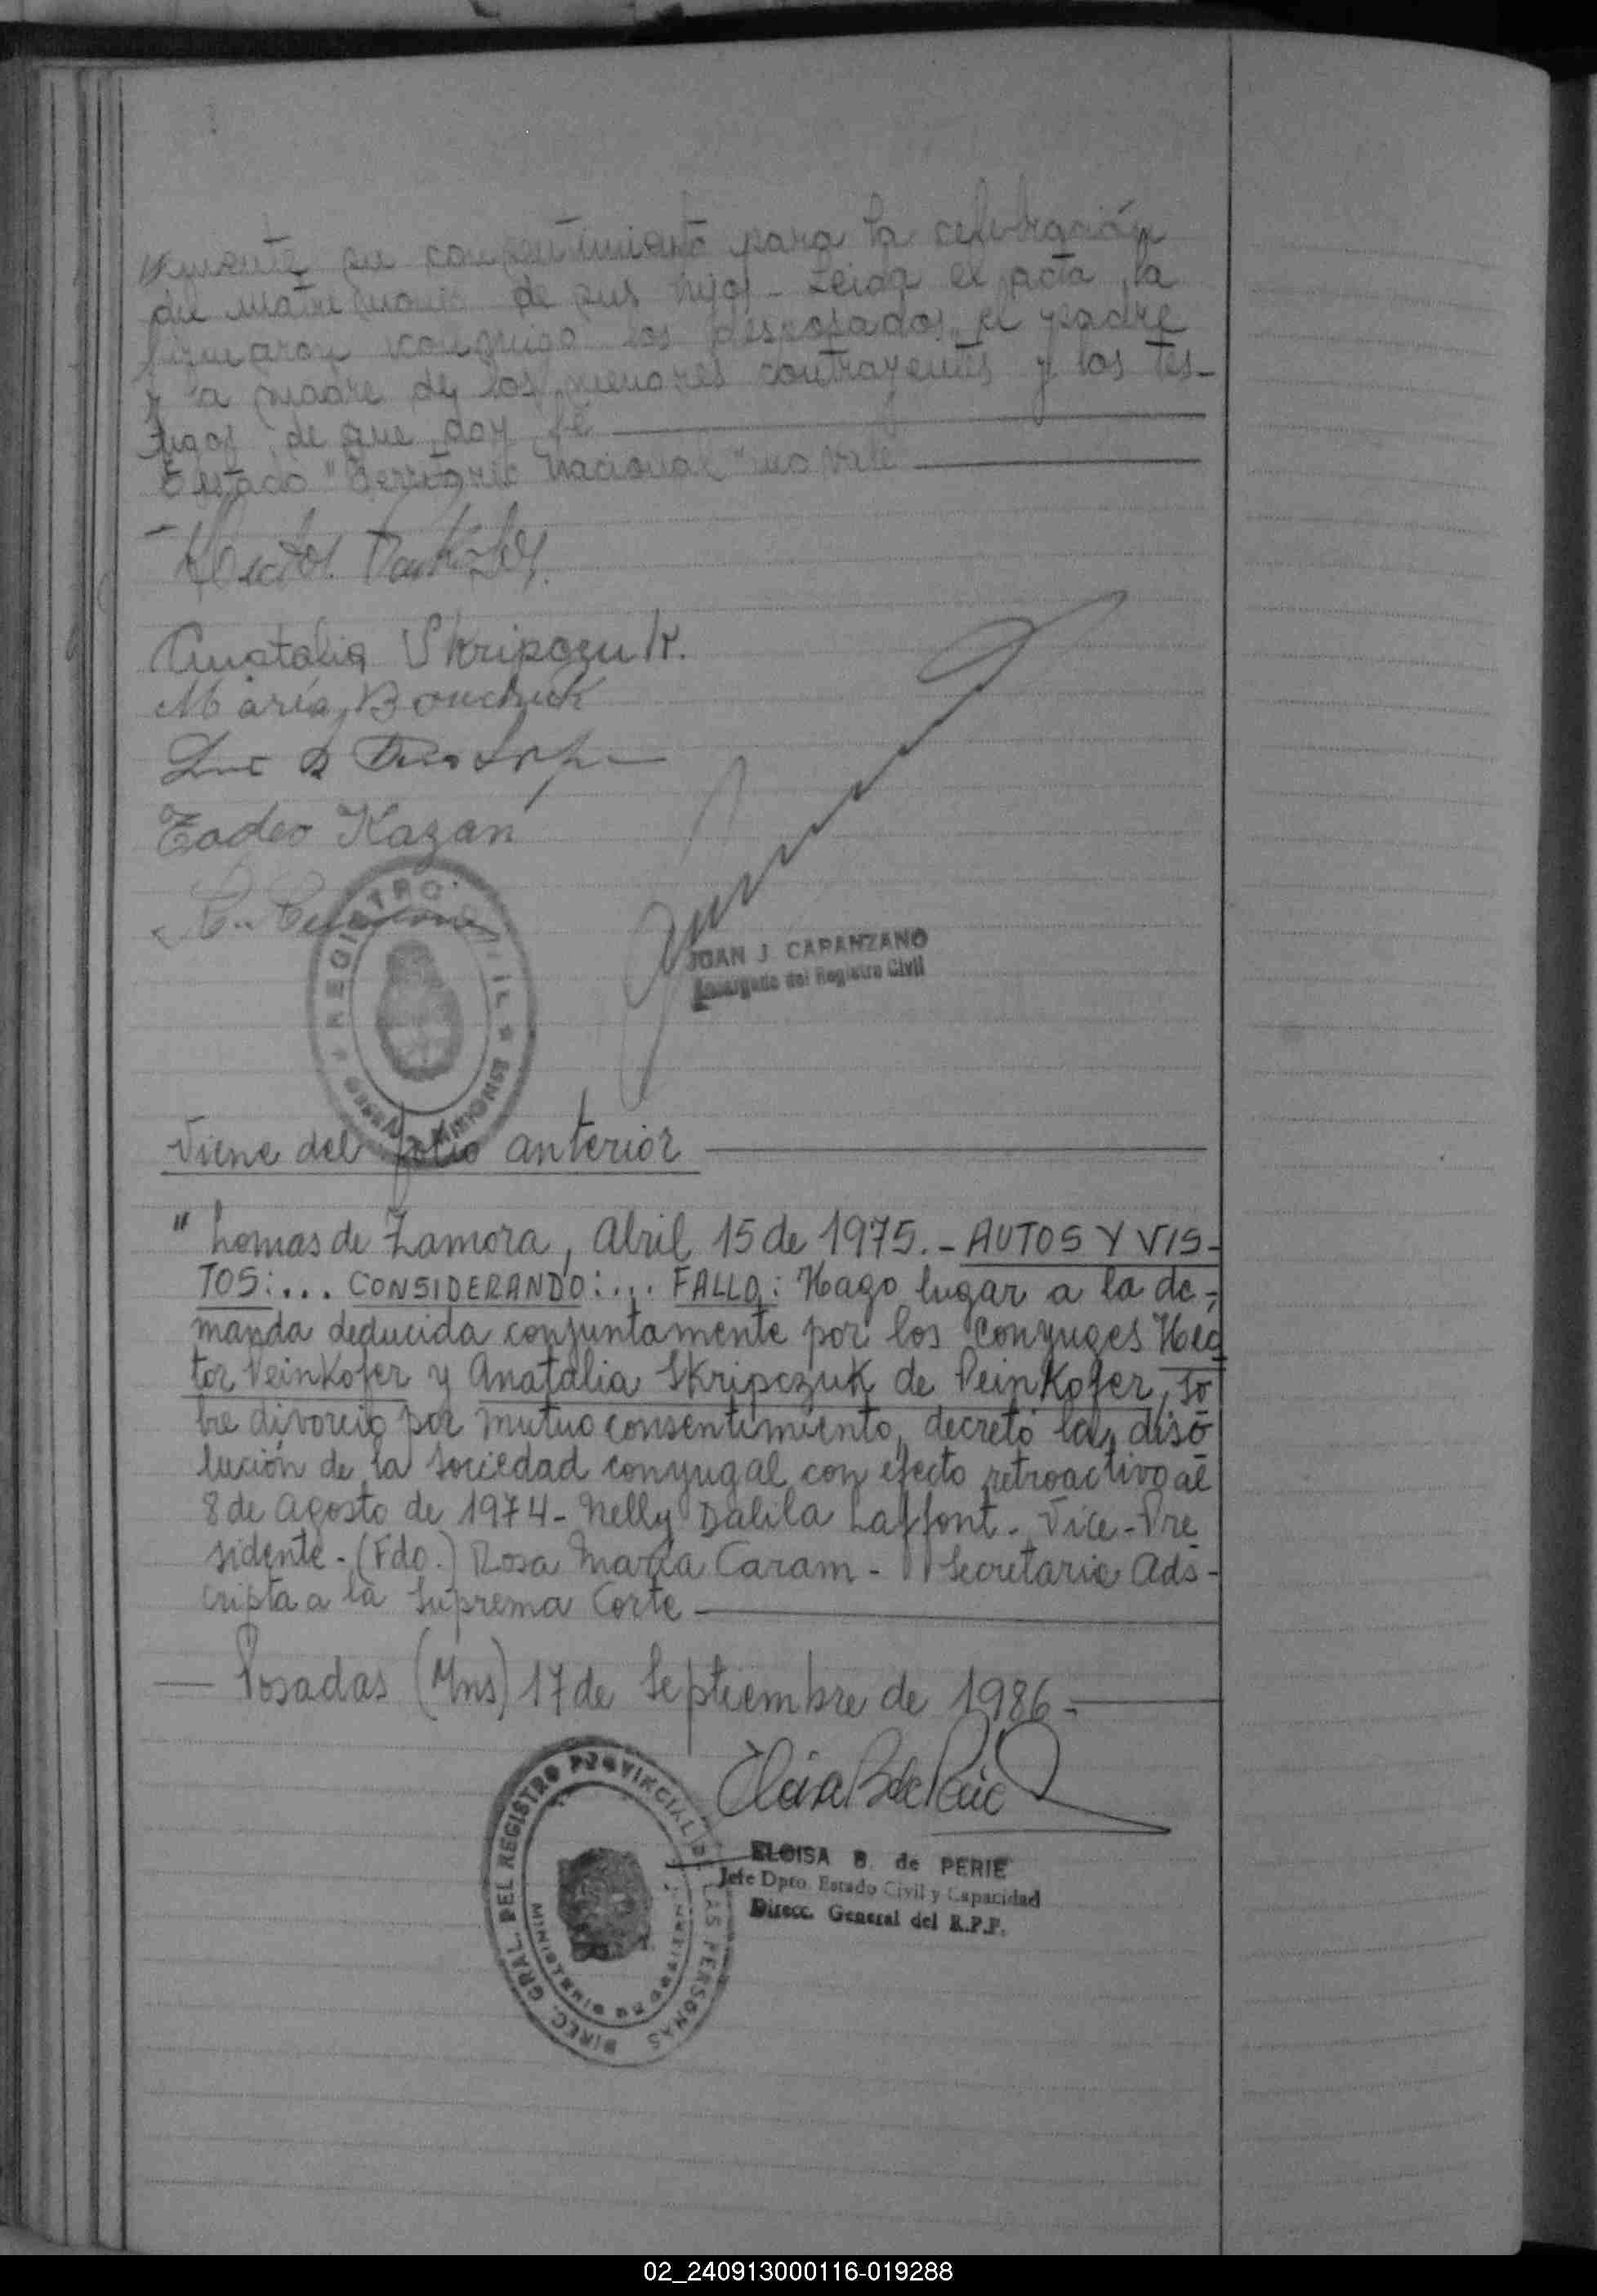 su consentimiento para la celebración
del matrimonio de sus hijos - Leida el acta, la
firmaron conmigo los desposados, el padre
y la madre de los menores contrayentes y los tes-
tigos de que doy fé
Testado "Territorio Nacional" no vale
Anatalia Skripczuk.
María Bonchuk
Tadeo Kazan
REGISTRO
MISIONES
JUAN J. CAPANZANO
Encargado del Registro Civil
Viene del folio anterior
" Lomas de Zamora, Abril 15 de 1975. - AUTOS Y VIS-
TOS:... CONSIDERANDO:... FALLO: Hago lugar a la de-
manda deducida conjuntamente por los conyuges Hec
tor Peinkofer y Anatalia Skripczuk de Peinkofer, so
bre divorcio por mutuo consentimiento, decreto la diso
lución de la sociedad conyugal con efecto retroactivo al
8 de Agosto de 1974 - Nelly Dalila Laffont - Vice-Pre
sidente - (Fdo.) Rosa María Caram - Secretaria Ads-
cripta a la Suprema Corte
Posadas (Mns) 17 de Septiembre de 1986 -
DIREC. GRAL. DEL REGISTRO PROVINCIAL DE LAS PERSONAS
ELOISA B. de PERIE
Jefe Dpto. Estado Civil y Capacidad
Direcc. General del R.P.P.
02_240913000116-019288